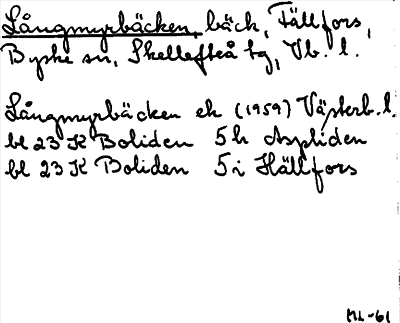 Långmyrbäcken, bäck, Fällfors,
Byske sn, Skellefteå tg, Vb. l.
Långmyrbäcken ek (1959) Västerb. l.
bl 23 K Boliden 5 h Aspliden
bl 23 K Boliden 5 i Hällfors
ML-61